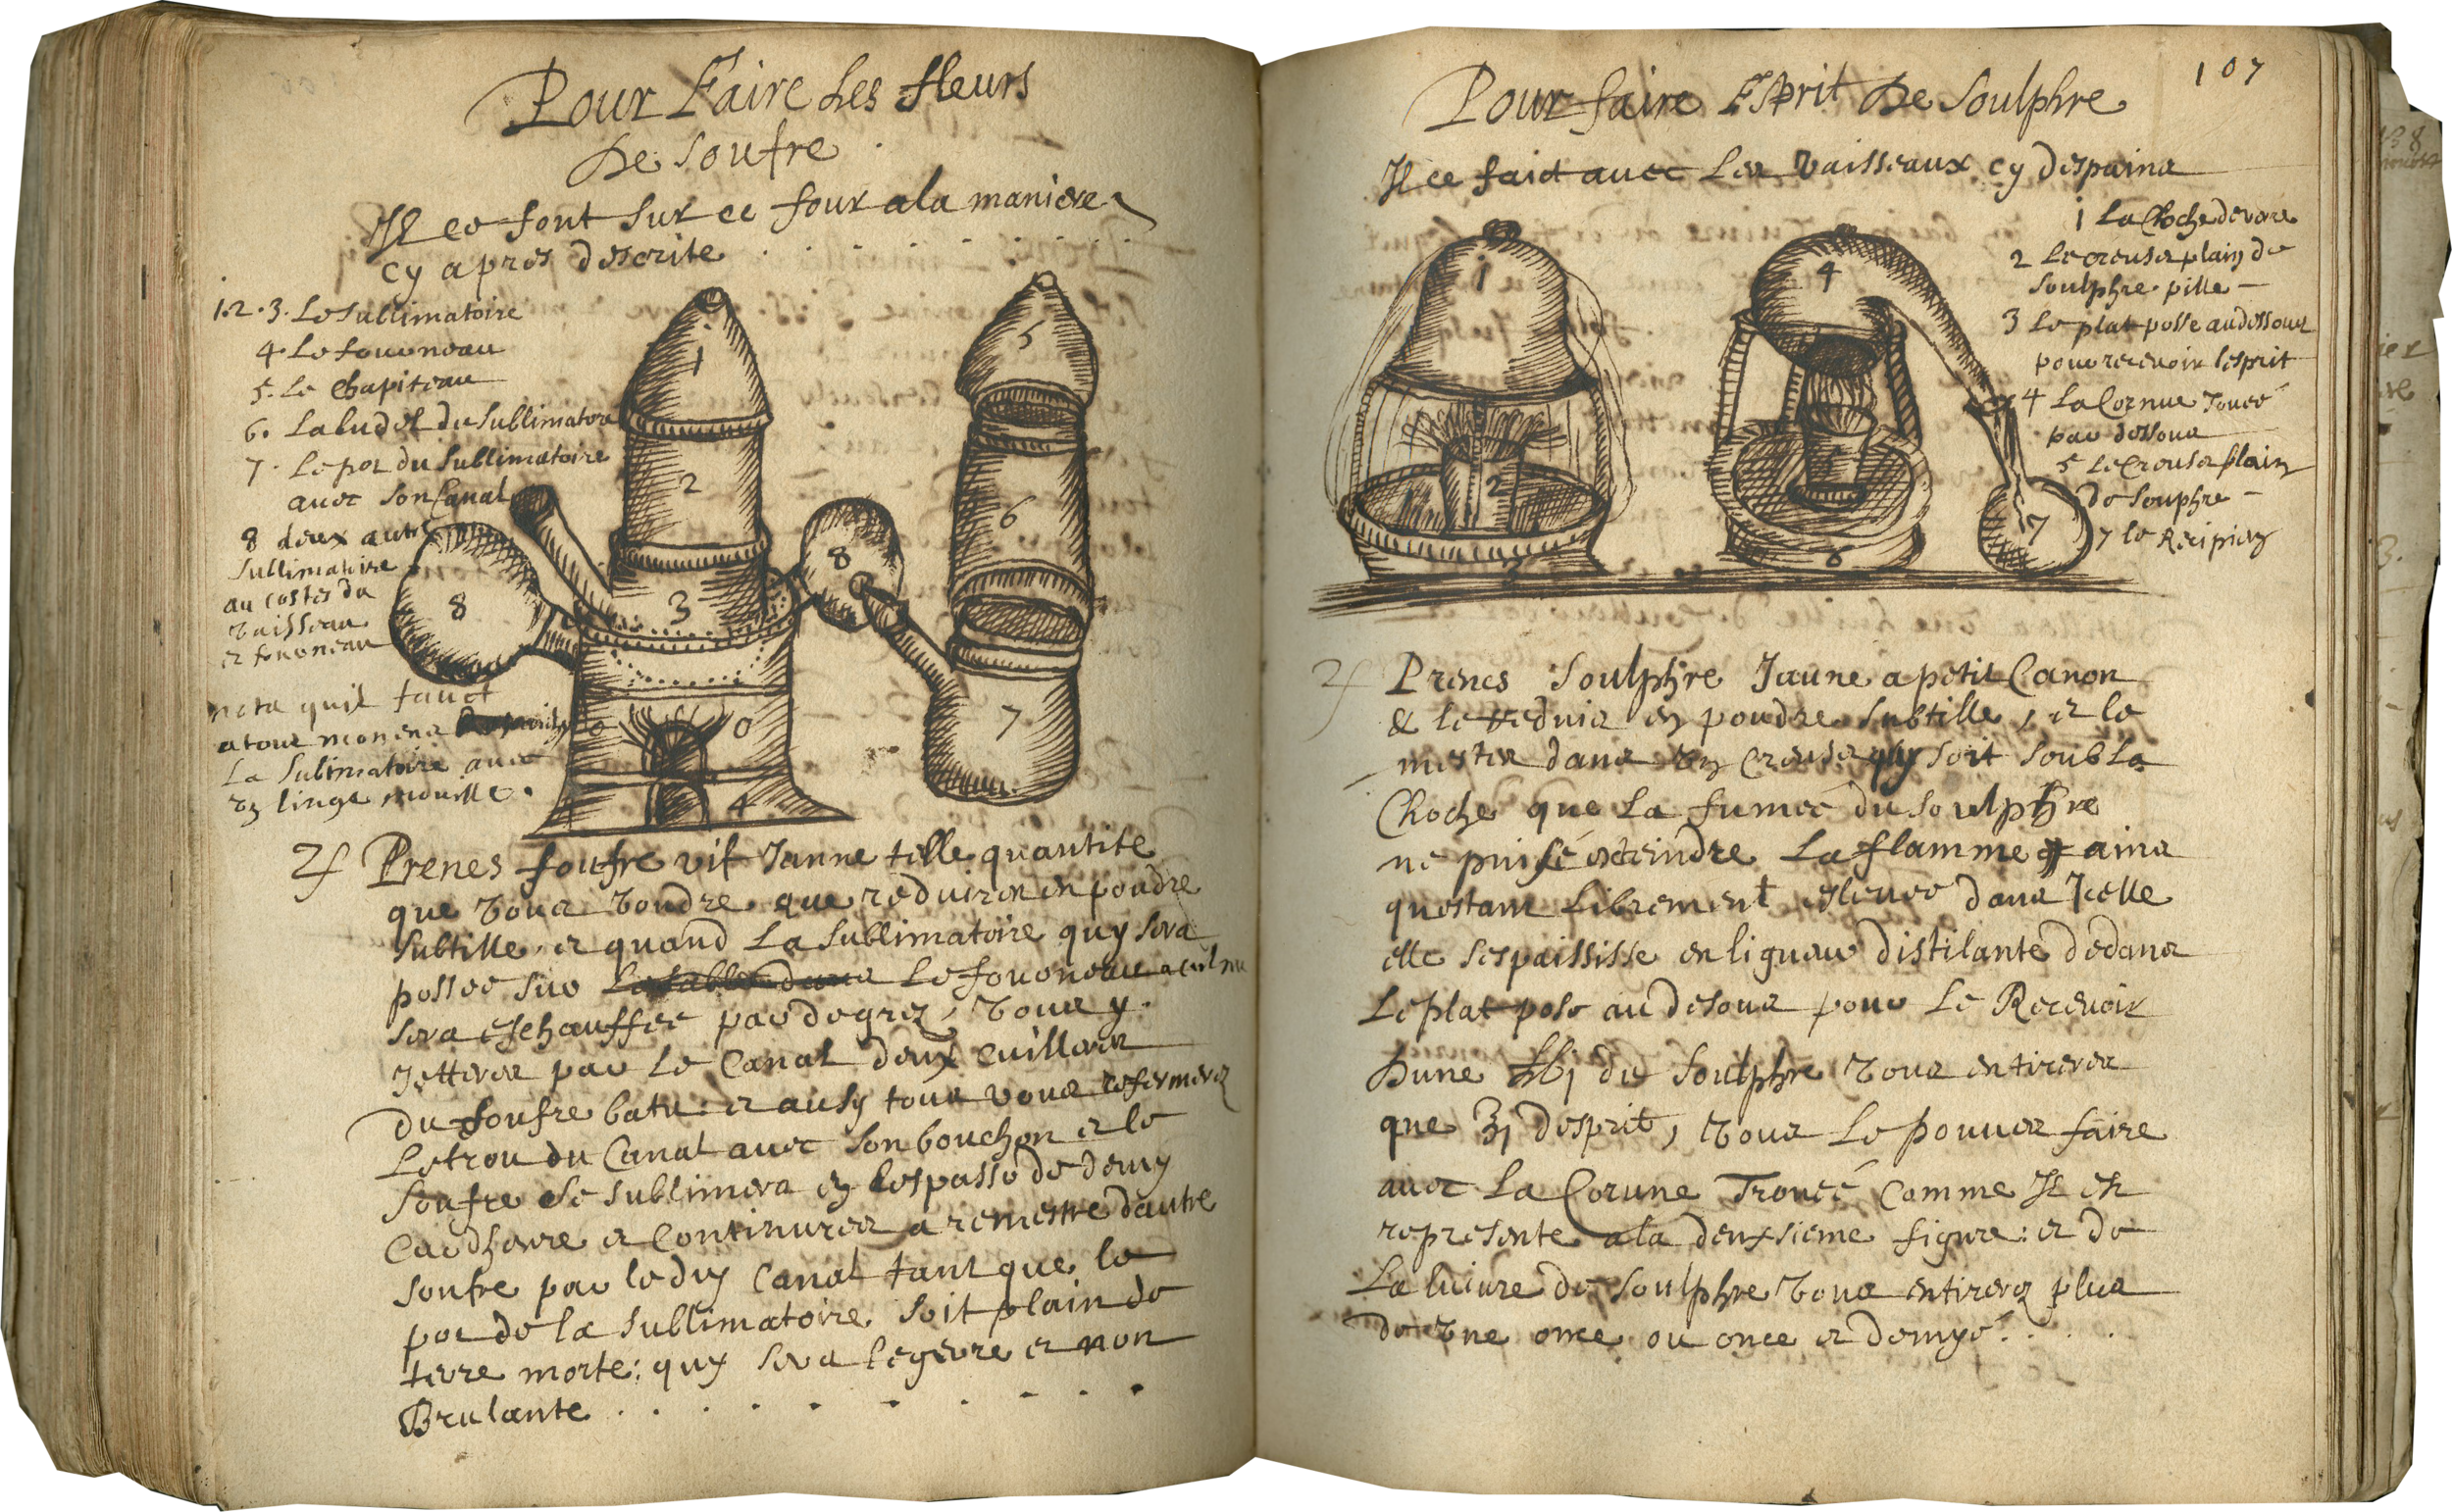 Pour Faire Les fleurs
De Soufre
Il ce font sur ce four a la maniere
cy apres descrite
1.2.3. Le Sublimatoire
4. Le fourneau
5. Le Chapiteau
6. Laludel du Sublimatoire
7. Le pot du Sublimatoire
avec son Canal
8 deux autres
Sublimatoire
au costes du
vaisseau
et fourneau
nota quil faut
a tous momens
La Sublimatoire avec
un linge mouille.
♃ Prenes soufre vif Jaune telle quantite
que vous voudres que reduires en poudre
subtille, et quand La Sublimatoire quy sera
possee sur Le fourneau
sera eschauffee par degrez, vous y
Jetteres par Le Canal deux cuilleres
du soufre batu: et ausy tous vous refermeres
Le trou du Canal avec son bouchon et le
soufre se sublimera en lespasse de demy
cardheure et Continueres a remestre dautre
soufre par le dit Canal tant que le
pot de la Sublimatoire soit plain de
terre morte: quy sera legere et non
Brulante
107
Pour faire Esprit De Soulphre
Il ce faict avec Les vaisseaux cy despains
1 La Cloche de verre
2 Le creuset plain de
soulphre pille
3 Le plat posse audessous
pour recevoir lesprit
4 La Cornue Trouee
par dessous
5 Le Creuset plain
de souphre
7 le Recipien
1
2
3
4
5
6
7
8
8
1
2
3
4
6
7
♃ Prenes Soulphre Jaune a petit Canon
& le reduis en poudre subtille, et le
mestes dans un Creuset quy soit soubs La
Cloche que La fumee du soulphre
ne puise esteindre La flamme ains
questant Librement eslevee dans Icelle
elle sespaississe en liqueur distilante dedans
Le plat pose au desous pour Le Recevoir
Dune ℔j de Soulphre vous en tireres
que ʒj desprit, vous Le pouves faire
avec La Corune Trouee Comme Il est
represente a la deuxsieme figure: et de
La livre de Soulphre vous en tireres plus
de une once ou once et demye.